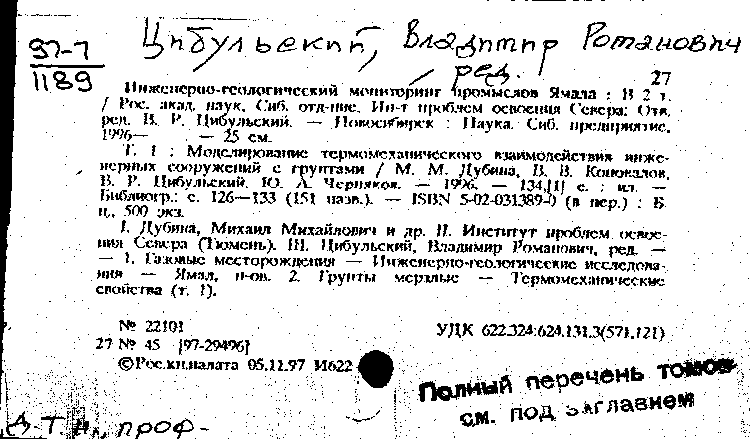 97-7
1189
Цибульский, Владимир Романович
ред.
27
Инженерно-геологический мониторинг промыслов Ямала : В 2 т.
/ Рос. акад. наук, Сиб. отд-ние, Ин-т проблем освоения Севера; Отв.
ред. В. Р. Цибульский. — Новосибирск : Наука. Сиб. предприятие,
1996— . — 25 см.
Т. 1 : Моделирование термомеханического взаимодействия инже-
нерных сооружений с грунтами / М. М. Дубина, В. В. Коновалов,
В. Р. Цибульский, Ю. А. Черняков. — 1996. — 134,[1] с. : ил. —
Библиогр.: с. 126—133 (151 назв.). — ISBN 5-02-031389-0 (в пер.) : Б.
ц., 500 экз.
I. Дубина, Михаил Михайлович и др. II. Институт проблем освое-
ния Севера (Тюмень). III. Цибульский, Владимир Романович, ред. —
— 1. Газовые месторождения — Инженерно-геологические исследова-
ния — Ямал, п-ов. 2. Грунты мерзлые — Термомеханические
свойства (т. 1).
№ 22101
УДК 622.324:624.131.3(571.121)
27 № 45 [97-29496]
©Рос.кн.палата 05.11.97 И622
Полный перечень томов
см. под заглавием
д.т.н., проф.